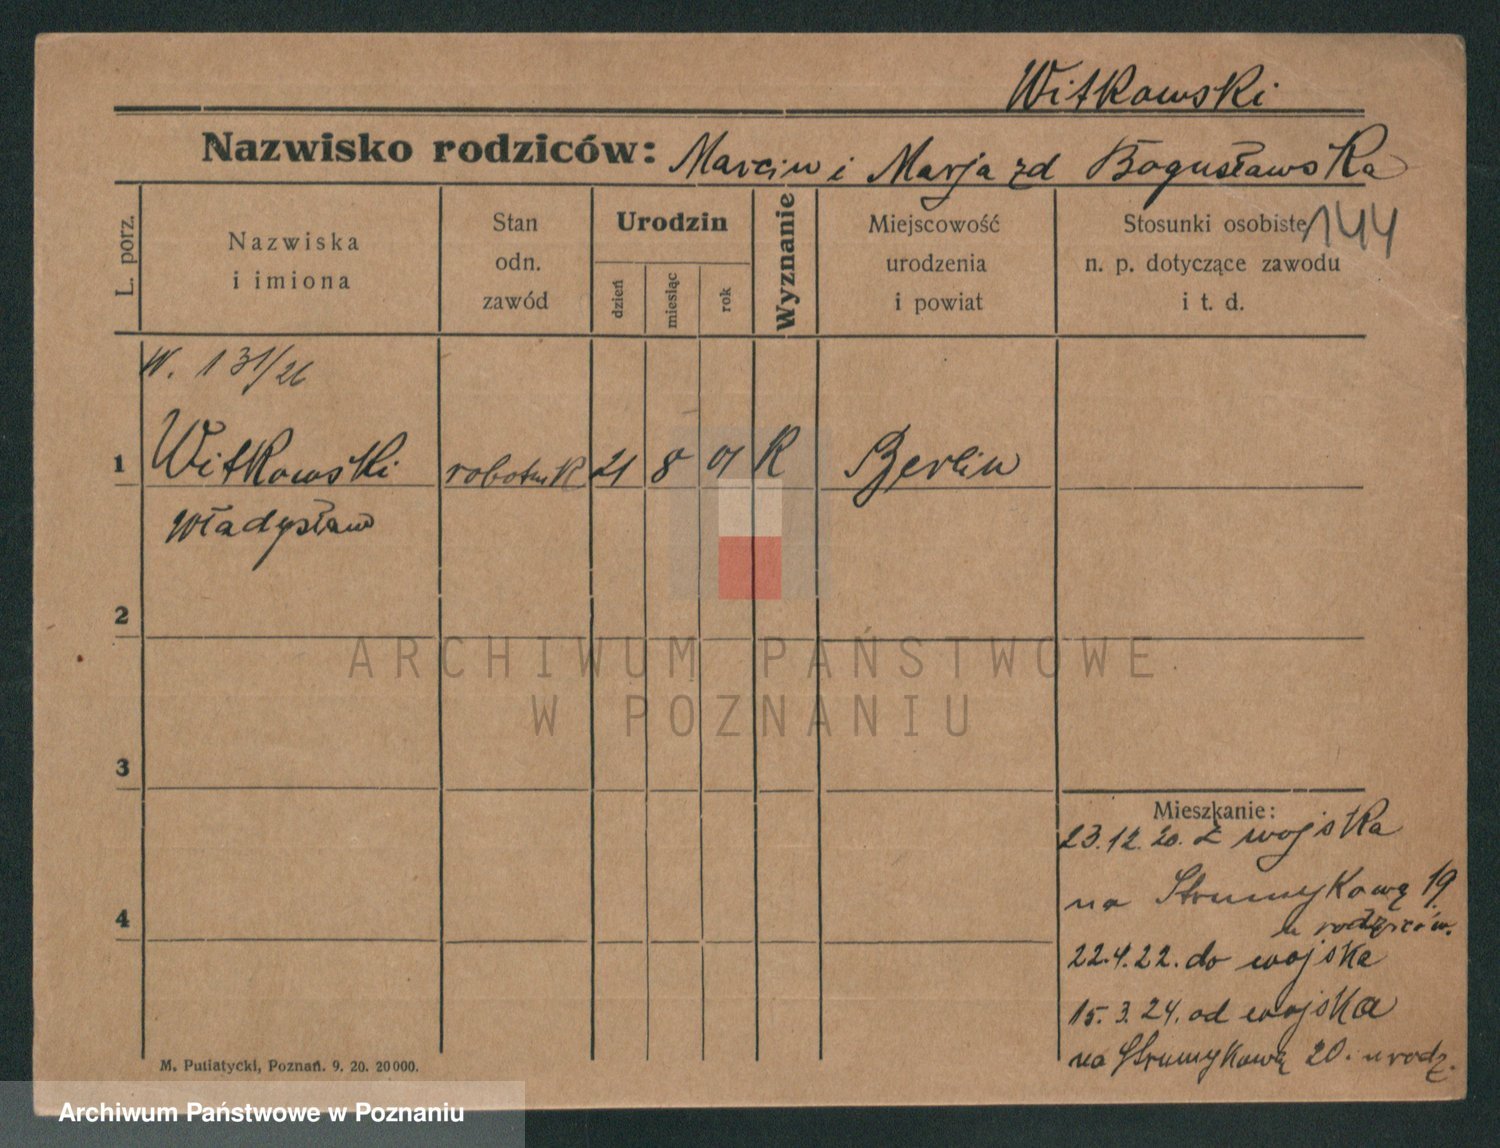 Witkowski
Nazwisko rodziców: Marcin i Marja zd Bogusławska
144
L. porz.
Nazwiska
i imiona
Stan
odn.
zawód
Urodzin
dzień
miesiąc
rok
Wyznanie
Miejscowość
urodzenia
i powiat
Stosunki osobiste
n. p. dotyczące zawodu
i t. d.
W. 131/26
1 Witkowski robotnik 21 8 01 K Berlin
Władysław
2
3
4
Mieszkanie:
23.12.20. z wojska
na Strumykową 19
u rodziców.
22.4.22. do wojska
15.3.24. od wojska
na Strumykową 20. u rodz.
M. Putiatycki, Poznań. 9. 20. 20 000.
ARCHIWUM PAŃSTWOWE
W POZNANIU
Archiwum Państwowe w Poznaniu